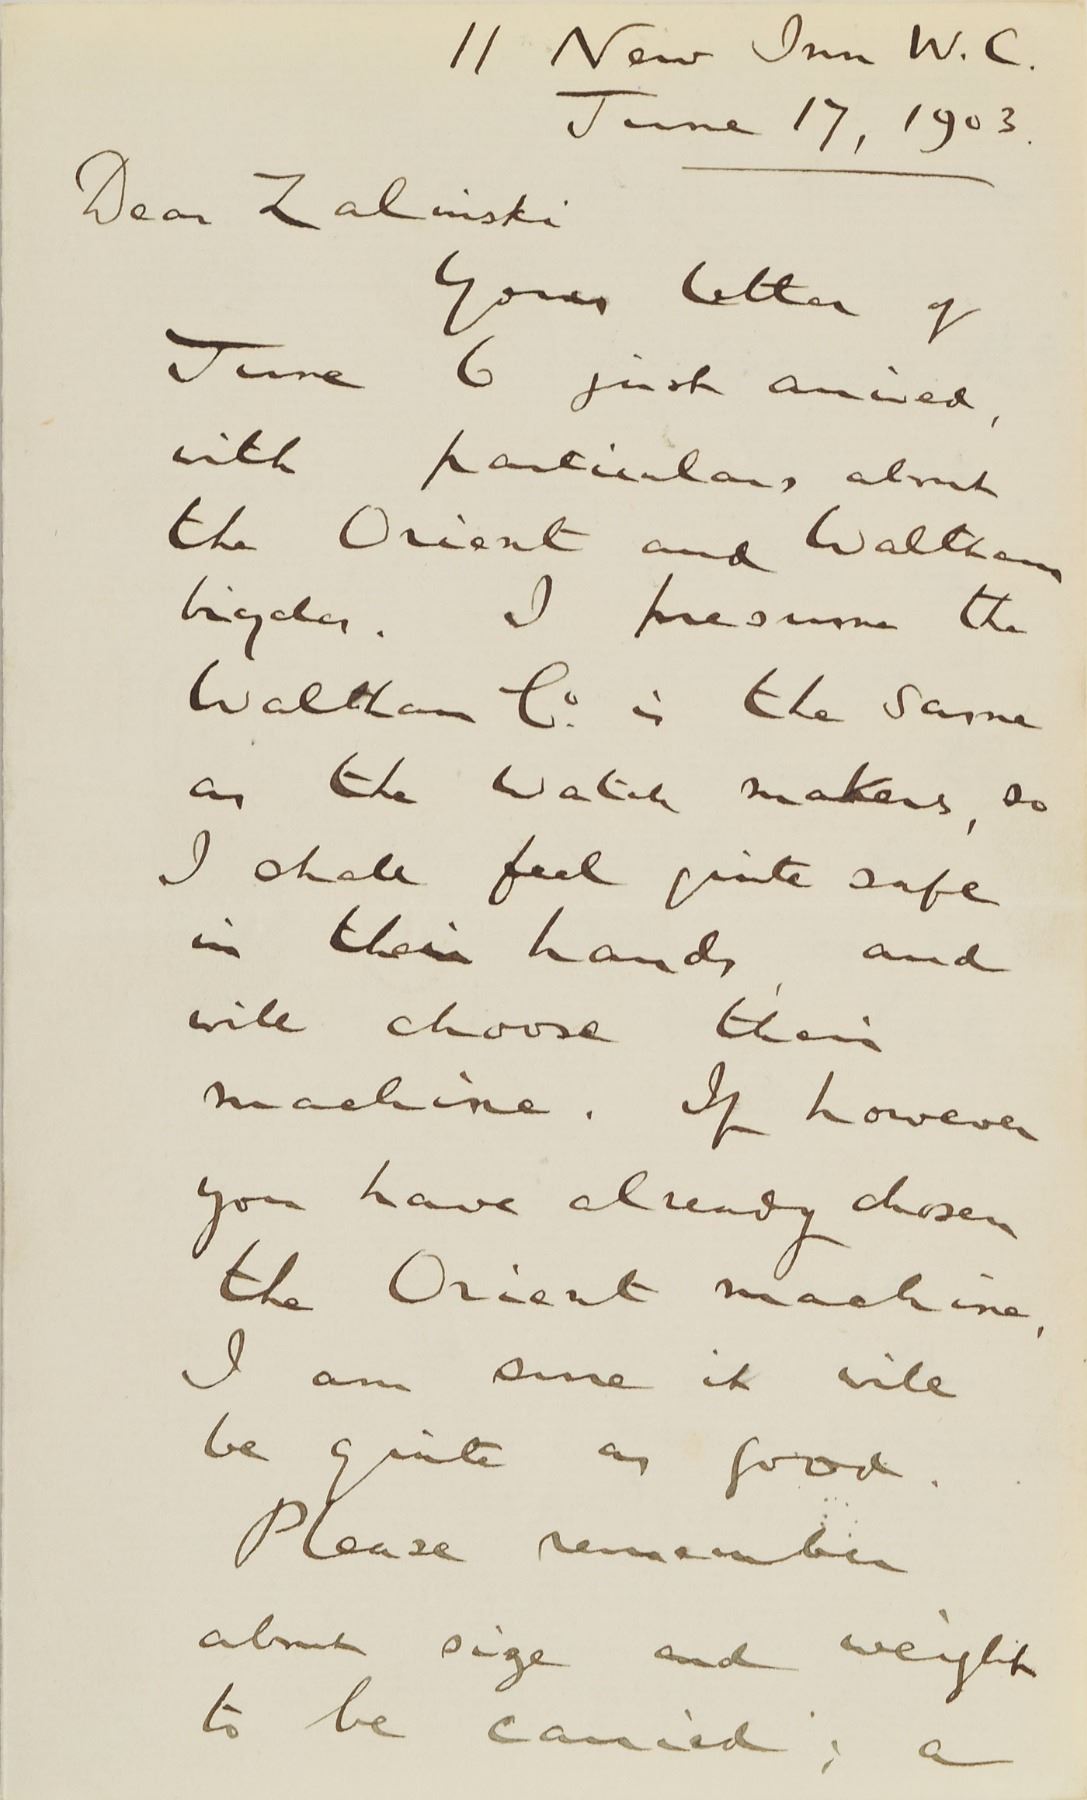 11 New Inn W.C.
June 17, 1903.
Dear Zalinski
Your letter of
June 6 just arrived,
with particulars about
the Orient and Waltham
bicycles. I presume the
Waltham Co. is the same
as the watch makers, so
I shall feel quite safe
in their hands, and
will choose their
machine. If however
you have already chosen
the Orient machine,
I am sure it will
be quite as good.
Please remember
about size and weight
to be carried; a